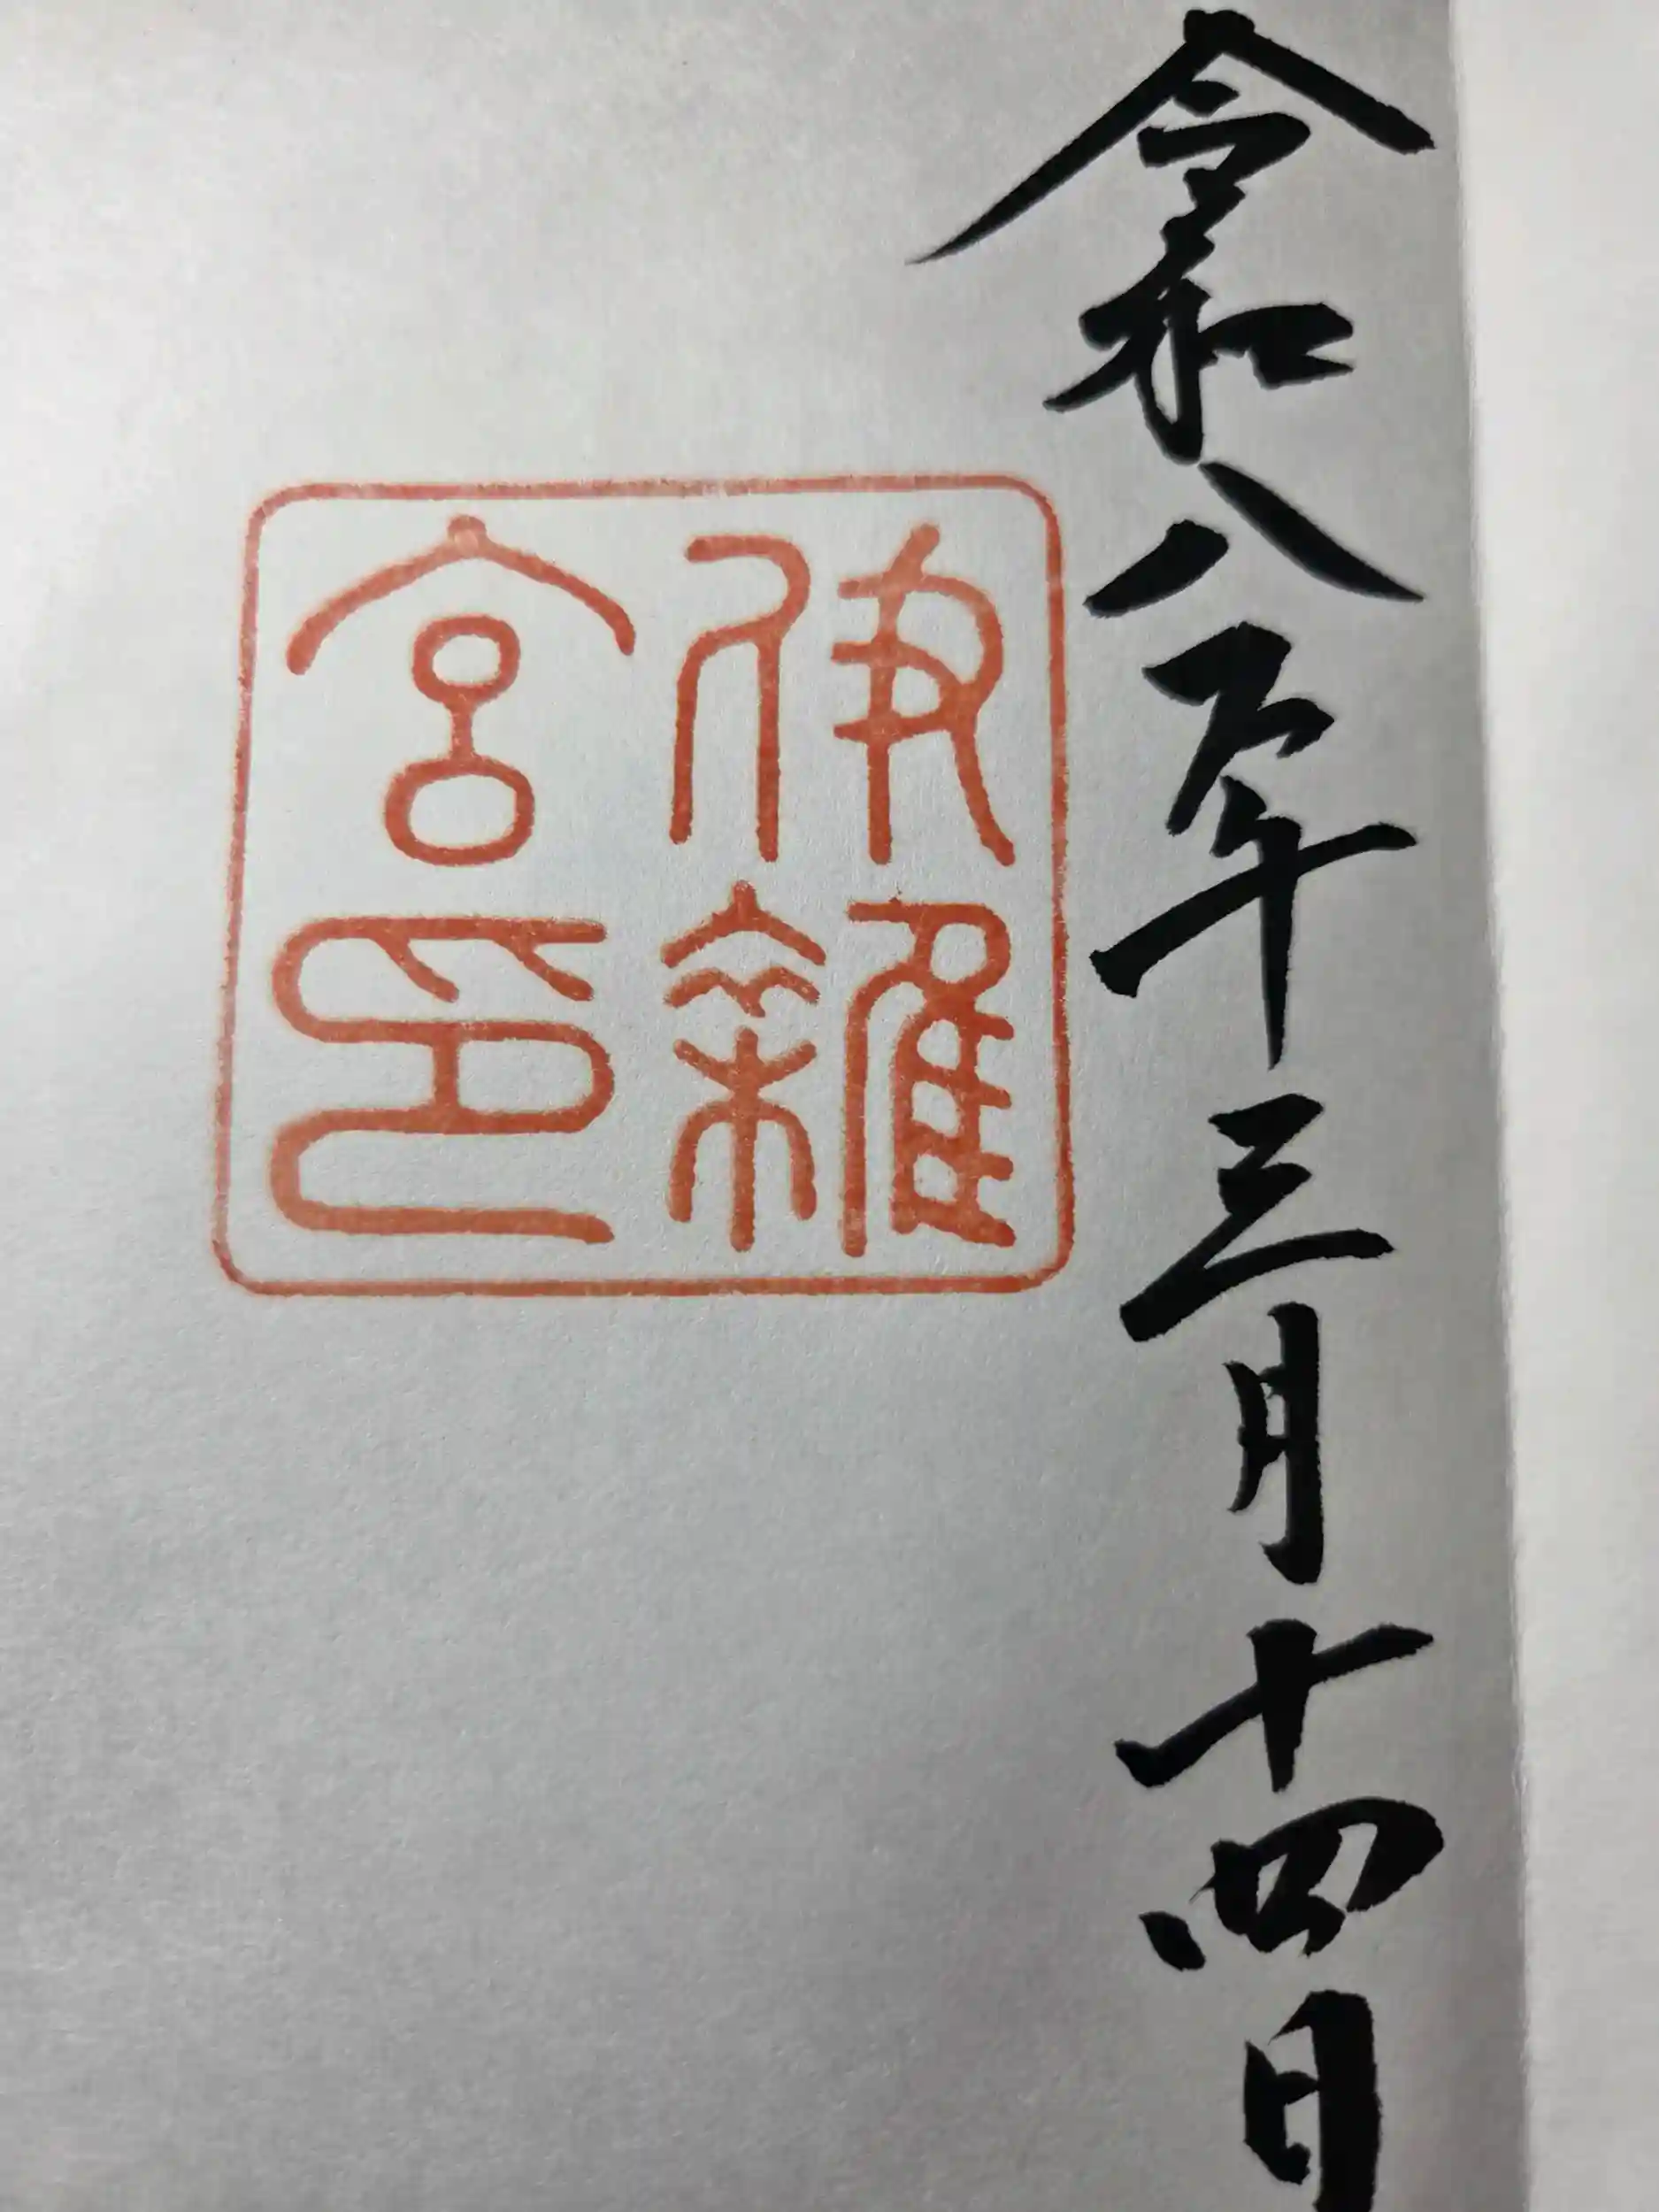 令和八年三月十四日
伊雜
宮印